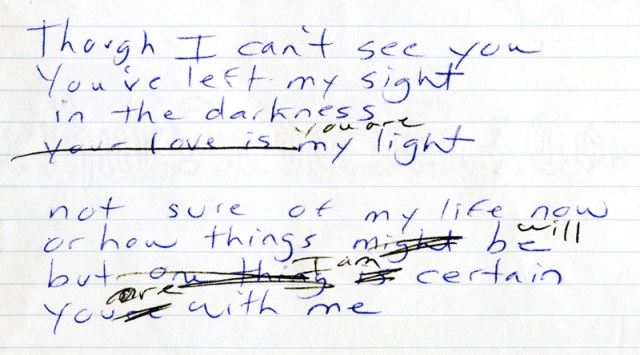 Though I can't see you
You've left my sight
in the darkness
you are
your love is my light
not sure of my life now
or how things might be will
I am
but one thing is certain
are
you with me